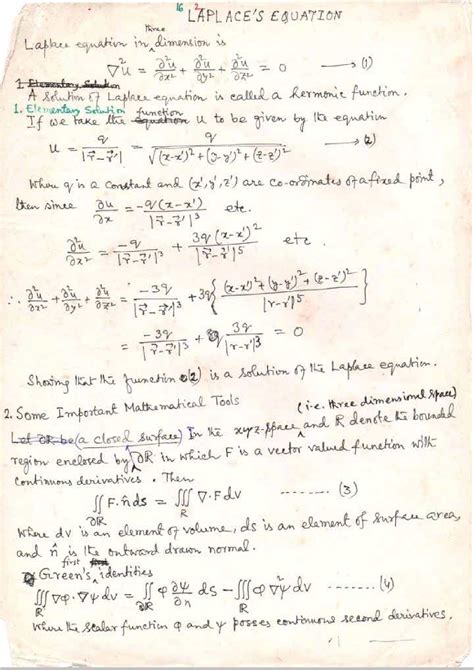 16 2
LAPLACE'S EQUATION
three
Laplace equation in dimension is
∇²u = ∂²u/∂x² + ∂²u/∂y² + ∂²u/∂z² = 0 ⟶ (1)
1. Elementary Solution
A solution of Laplace equation is called a hermonic function.
1. Elementary Solution function
If we take the equation u to be given by the equation
u = q/|r⃗-r⃗'| = q/√((x-x')²+(y-y')²+(z-z')²) ⟶ (2)
Where q is a constant and (x',y',z') are co-ordinates of a fixed point,
then since ∂u/∂x = -q(x-x')/|r⃗-r⃗'|³ etc.
∂²u/∂x² = -q/|r⃗-r⃗'|³ + 3q(x-x')²/|r⃗-r⃗'|⁵ etc.
∴ ∂²u/∂x² + ∂²u/∂y² + ∂²u/∂z² = -3q/|r⃗-r⃗'|³ + 3q{((x-x')²+(y-y')²+(z-z')²)/|r-r'|⁵}
= -3q/|r⃗-r⃗'|³ + 3q/|r-r'|³ = 0
Showing that the function (2) is a solution of the Laplace equation.
2. Some Important Mathematical Tools (i.e. three dimensional space)
Let ∂R be (a closed surface) In the xyz-space and R denote the bounded
region enclosed by ∂R in which F is a vector valued function with
continuous derivatives. Then
∬ F.n̂ ds = ∭ ∇.F dv ........ (3)
∂R R
Where dv is an element of volume, ds is an element of surface area,
and n̂ is the outward drawn normal.
first
Green's identities
∭ ∇φ.∇ψ dv = ∬ φ ∂ψ/∂n ds - ∭ φ ∇²ψ dv ...... (4)
R ∂R R
Where the scalar function φ and ψ posses continuous second derivatives.